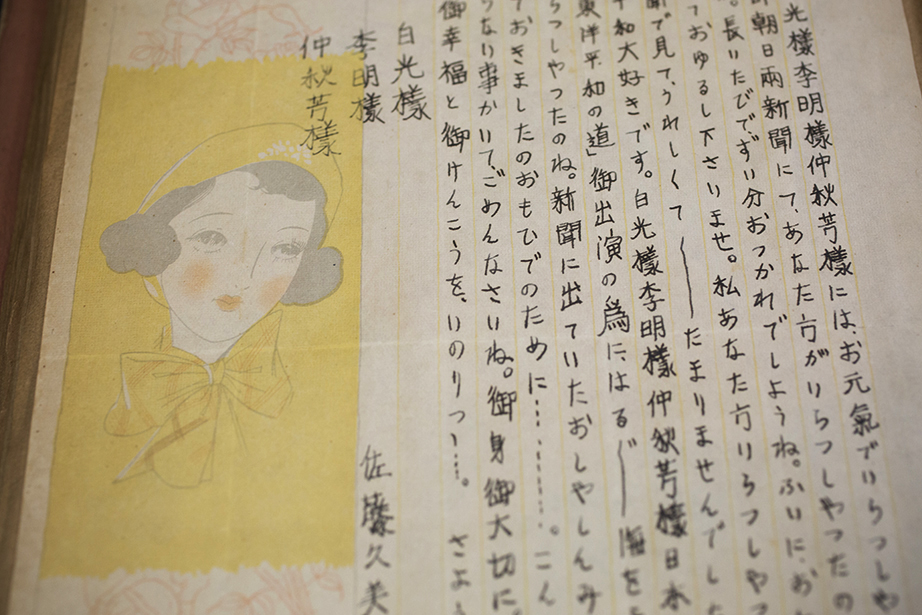 光樣李明樣仲秋芳樣には、お元氣でいらつしや
朝日兩新聞にて、あなた方がいらつしやつたの
。長いたびでずい分おつかれでしようね。ふいに、お
ておゆるし下さりませ。私あなた方いらつしや
聞で見て、うれしくて――たまりませんでし
和大好きです。白光樣李明樣仲秋芳樣日本
東洋平和の道」御出演の爲に、はる〲海を
らつしやつたのね。新聞に出ていたおしやしんみ
ておきましたのおもひでのために………。こん
な事かいて、ごめんなさいね。御身御大切に
御幸福と御けんこうを、いのりつゝ…。 さよ
白光樣
李明樣
仲秋芳樣
佐藤久美